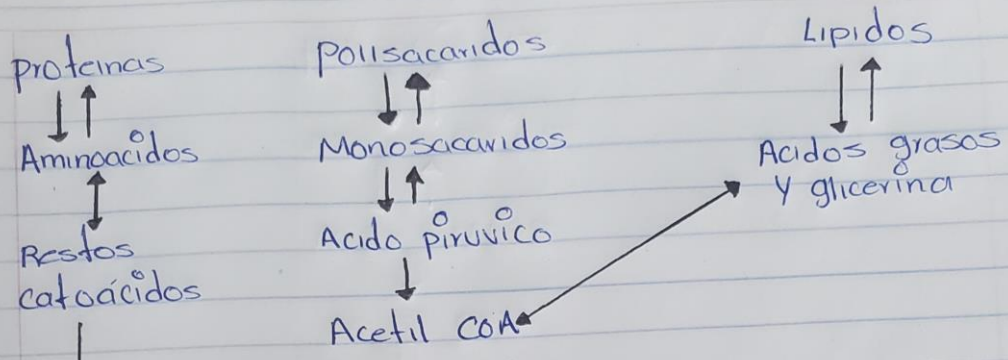 Proteinas
Aminoacidos
Restos
catoácidos
Polisacaridos
Monosacaridos
Acido piruvico
Acetil COA
Lipidos
Acidos grasos
y glicerina